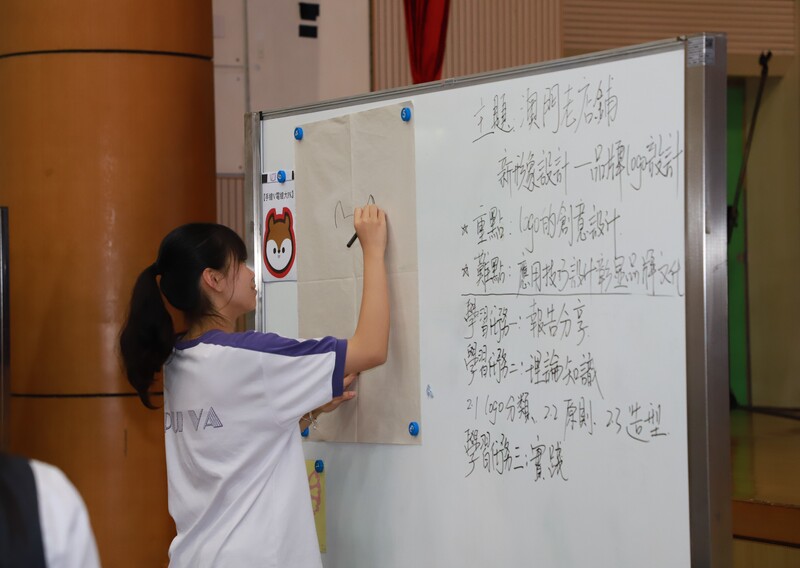 主題 澳門老店舖
新形象設計—品牌logo設計
★重點：logo的創意設計
★難點：應用技巧設計彰显品牌文化
學習任務一：報告分享
學習任務二：理論知識
2.1 logo分類、2.2 原則、2.3 造型
學習任務三：實踐